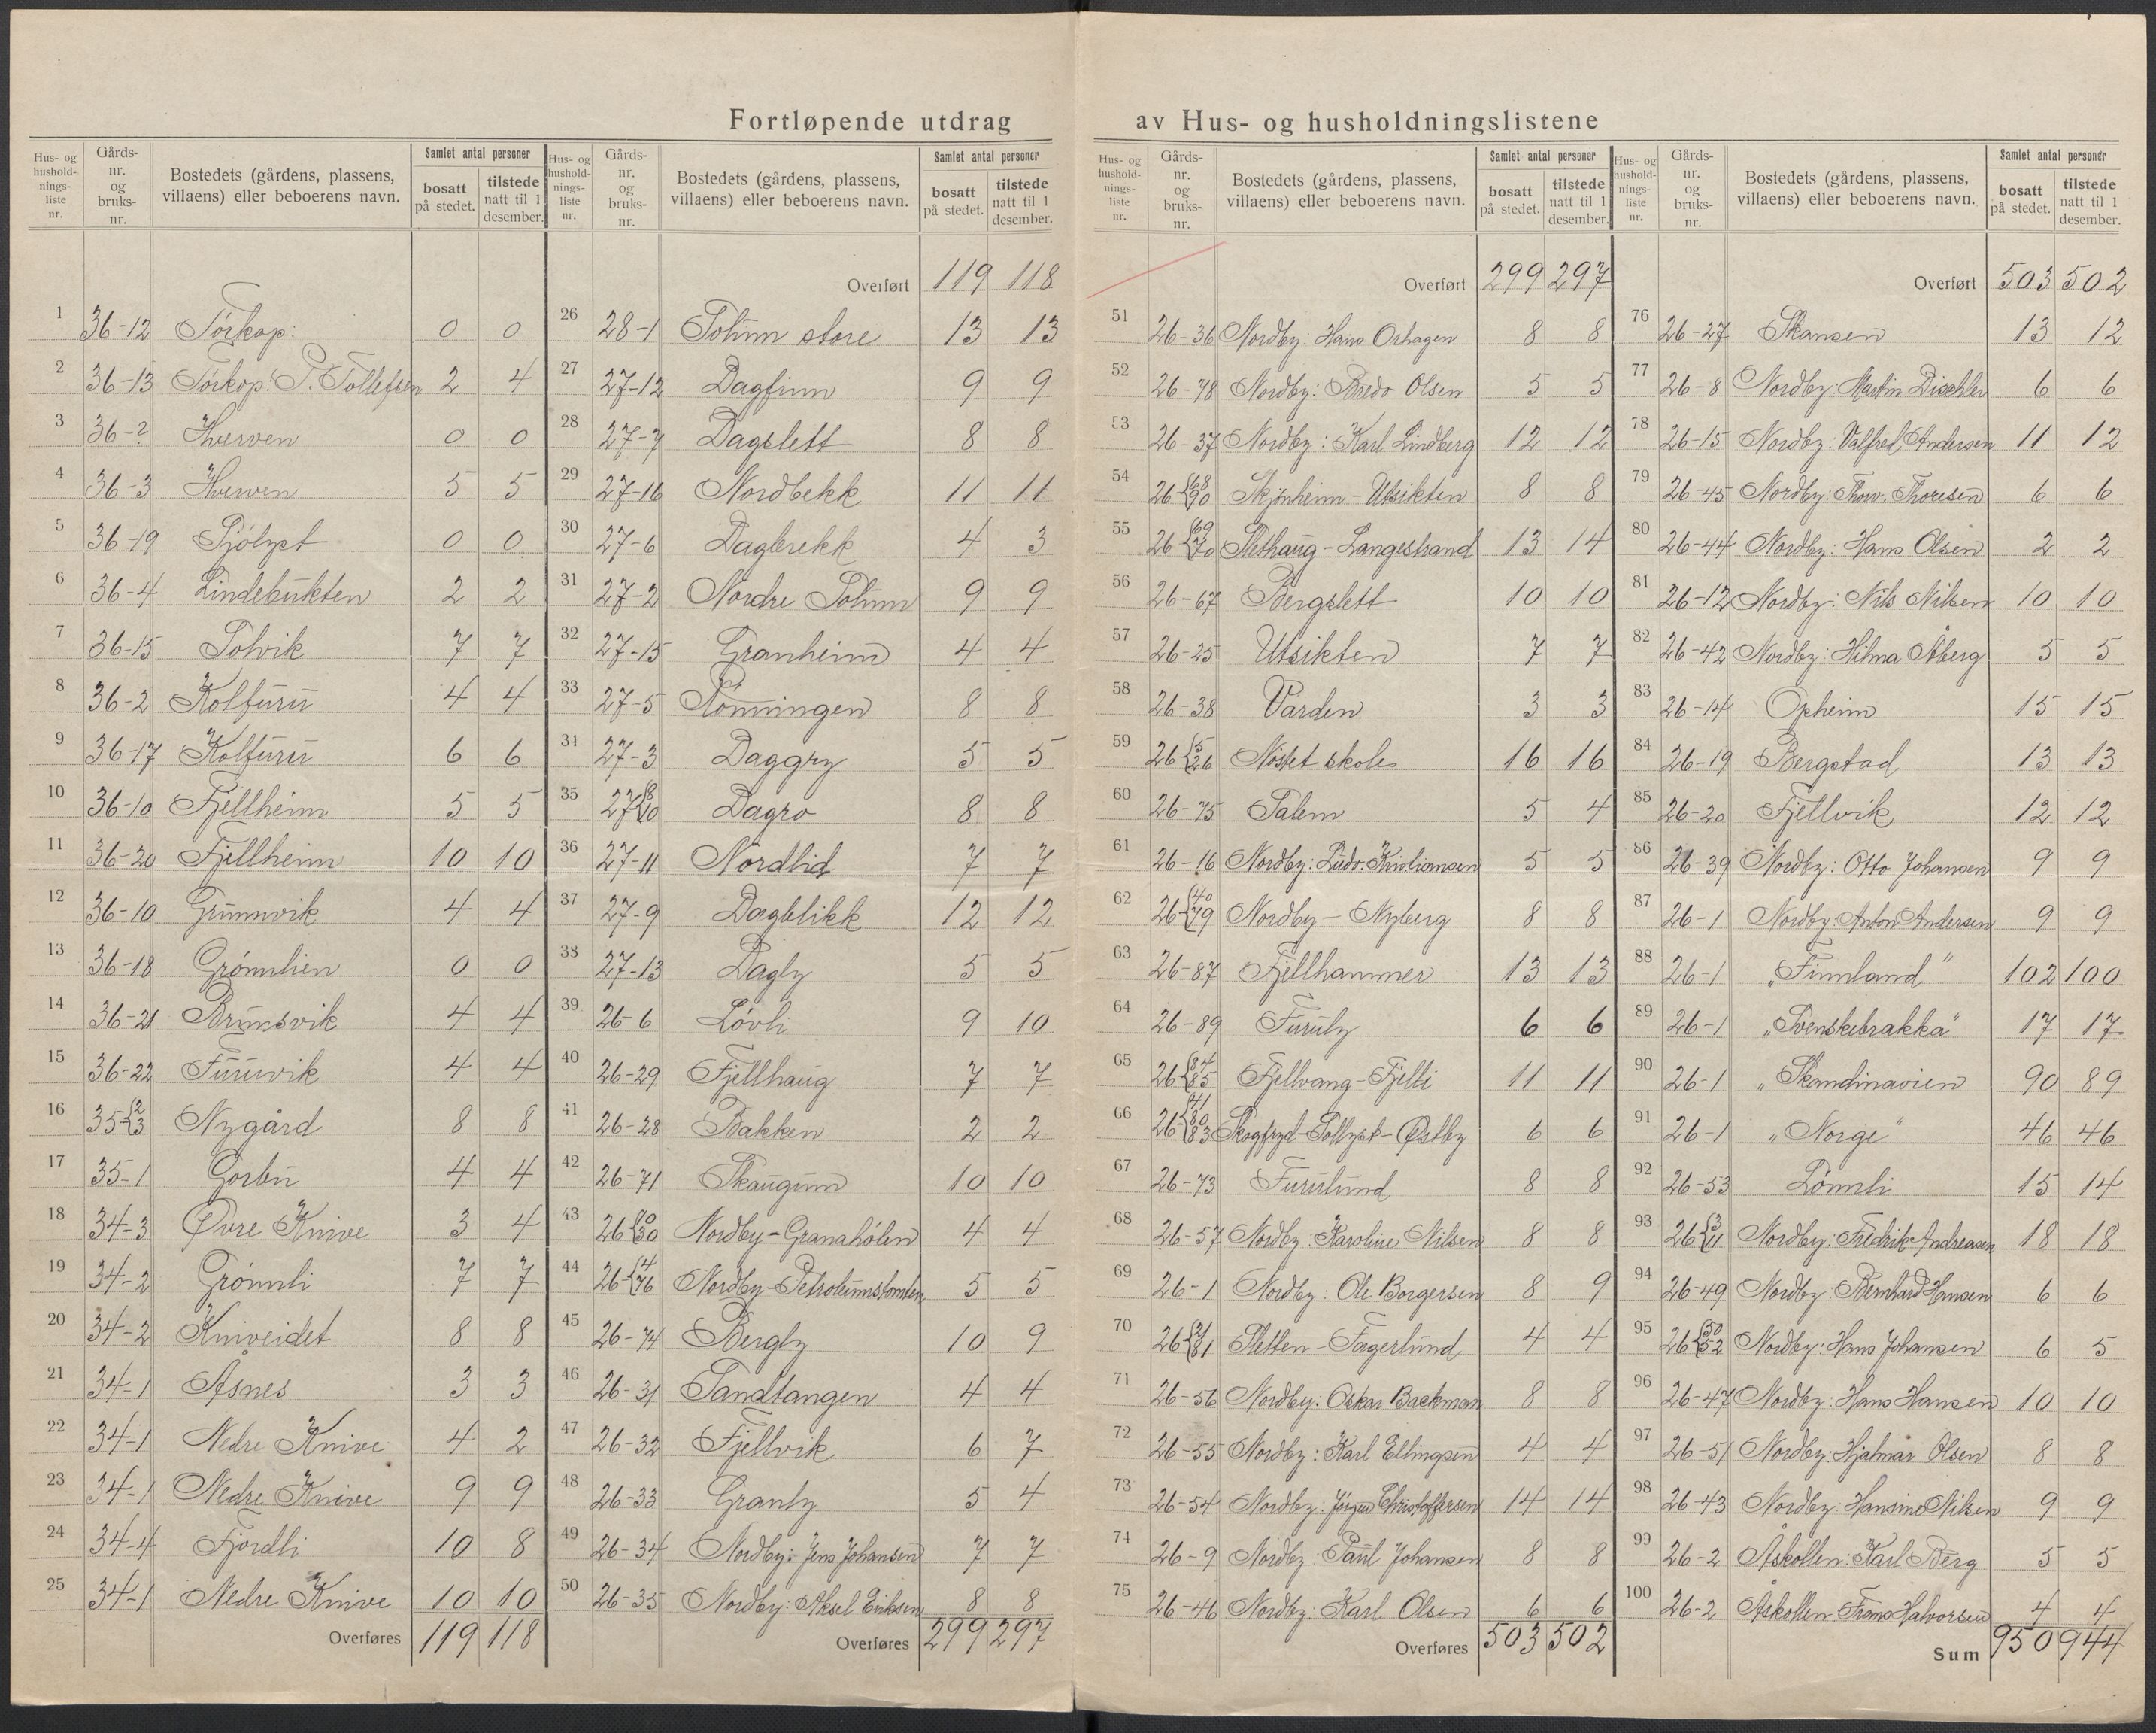 Fortløpende utdrag av Hus- og husholdningslistene
Hus- og husholdnings-liste nr. | Gårds-nr. og bruks-nr. | Bostedets (gårdens, plassens, villaens) eller beboerens navn. | Samlet antal personer | bosatt på stedet. | tilstede natt til 1 desember.
1 36-12 Tørkop: 0 0
2 36-13 Tørkop: P. Tollefsen 2 4
3 36-2 Hverven 0 0
4 36-3 Hverven 5 5
5 36-19 Sjölyst 0 0
6 36-4 Lindebukten 2 2
7 36-15 Solvik 7 7
8 36-2 Kolfuru 4 4
9 36-17 Kolfuru 6 6
10 36-10 Fjellheim 5 5
11 36-20 Fjellheim 10 10
12 36-10 Grunnvik 4 4
13 36-18 Grönnlien 0 0
14 36-21 Brunsvik 4 4
15 36-22 Furuvik 4 4
16 35-{2 3 Nygård 8 8
17 35-1 Gorbu 4 4
18 34-3 Øvre Knive 3 4
19 34-2 Grönnli 7 7
20 34-2 Kniveidet 8 8
21 34-1 Åsnes 3 3
22 34-1 Nedre Knive 4 2
23 34-1 Nedre Knive 9 9
24 34-4 Fjordli 10 8
25 34-1 Nedre Knive 10 10
Overføres 119 118
Hus- og husholdnings-liste nr. | Gårds-nr. og bruks-nr. | Bostedets (gårdens, plassens, villaens) eller beboerens navn. | Samlet antal personer | bosatt på stedet. | tilstede natt til 1 desember.
Overført 119 118
26 28-1 Solum store 13 13
27 27-12 Dagfinn 9 9
28 27-7 Dagslett 8 8
29 27-16 Nordbekk 11 11
30 27-6 Dagbrekk 4 3
31 27-2 Nordre Solum 9 9
32 27-15 Granheim 4 4
33 27-5 Rönningen 8 8
34 27-3 Daggry 5 5
35 27{8 10 Dagro 8 8
36 27-11 Nordlid 7 7
37 27-9 Dagblikk 12 12
38 27-13 Dagly 5 5
39 26-6 Lövli 9 10
40 26-29 Fjellhaug 7 7
41 26-28 Bakken 2 2
42 26-71 Skaugum 10 10
43 26{10 30 Nordby-Granahölen 4 4
44 26{4 76 Nordby-Petroleumstomten 5 5
45 26-74 Bergly 10 9
46 26-31 Sandtangen 4 4
47 26-32 Fjellvik 6 7
48 26-33 Granly 5 4
49 26-34 Nordby: Jens Johansen 7 7
50 26-35 Nordby: Aksel Eriksen 8 8
Overføres 299 297
Hus- og husholdnings-liste nr. | Gårds-nr. og bruks-nr. | Bostedets (gårdens, plassens, villaens) eller beboerens navn. | Samlet antal personer | bosatt på stedet. | tilstede natt til 1 desember.
Overført 299 297
51 26-36 Nordby: Hans Orhagen 8 8
52 26-78 Nordby: Bredo Olsen 5 5
53 26-37 Nordby: Karl Lindberg 12 12
54 26{68 90 Skjönheim-Utsikten 8 8
55 26{69 70 Slethaug-Langestrand 13 14
56 26-67 Bergslett 10 10
57 26-25 Utsikten 7 7
58 26-38 Varden 3 3
59 26{5 26 Nöstet skole 16 16
60 26-75 Salem 5 4
61 26-16 Nordby: Ludv. Kristiansen 5 5
62 26{40 79 Nordby-Nyberg 8 8
63 26-87 Fjellhammer 13 13
64 26-89 Furuly 6 6
65 26{84 85 Fjellvang-Fjelli 11 11
66 26-{41 80 83 Skogfryd-Sollyst-Østby 6 6
67 26-73 Furulund 8 8
68 26-57 Nordby: Karoline Nilsen 8 8
69 26-1 Nordby: Ole Borgersen 8 9
70 26{21 81 Sletten-Fagerlund 4 4
71 26-56 Nordby: Oskar Backman 8 8
72 26-55 Nordby: Karl Ellingsen 4 4
73 26-54 Nordby: Jörgen Christoffersen 14 14
74 26-9 Nordby: Paul Johansen 8 8
75 26-46 Nordby: Karl Olsen 6 6
Overføres 503 502
Hus- og husholdnings-liste nr. | Gårds-nr. og bruks-nr. | Bostedets (gårdens, plassens, villaens) eller beboerens navn. | Samlet antal personer | bosatt på stedet. | tilstede natt til 1 desember.
Overført 503 502
76 26-27 Skansen 13 12
77 26-8 Nordby: Martin Dischler 6 6
78 26-15 Nordby: Valfred Andersen 11 12
79 26-45 Nordby: Thorv. Thoresen 6 6
80 26-44 Nordby: Hans Olsen 2 2
81 26-12 Nordby: Nils Nilsen 10 10
82 26-42 Nordby: Hilma Åberg 5 5
83 26-14 Opheim 15 15
84 26-19 Bergstad 13 13
85 26-20 Fjellvik 12 12
86 26-39 Nordby: Otto Johansen 9 9
87 26-1 Nordby: Anton Andersen 9 9
88 26-1 „Finnland" 102 100
89 26-1 „Svenskebrakka" 17 17
90 26-1 „Skandinavien 90 89
91 26-1 „Norge" 46 46
92 26-53 Lönnli 15 14
93 26{3 11 Nordby: Fredrik Andreasen 18 18
94 26-49 Nordby: Bernhard Hansen 6 6
95 26{50 52 Nordby: Hans Johansen 6 5
96 26-47 Nordby: Hans Hansen 10 10
97 26-51 Nordby: Hjalmar Olsen 8 8
98 26-43 Nordby: Hansine Nilsen 9 9
99 26-2 Åskollen: Karl Berg 5 5
100 26-2 Åskollen: Frans Halvorsen 4 4
Sum 950 944